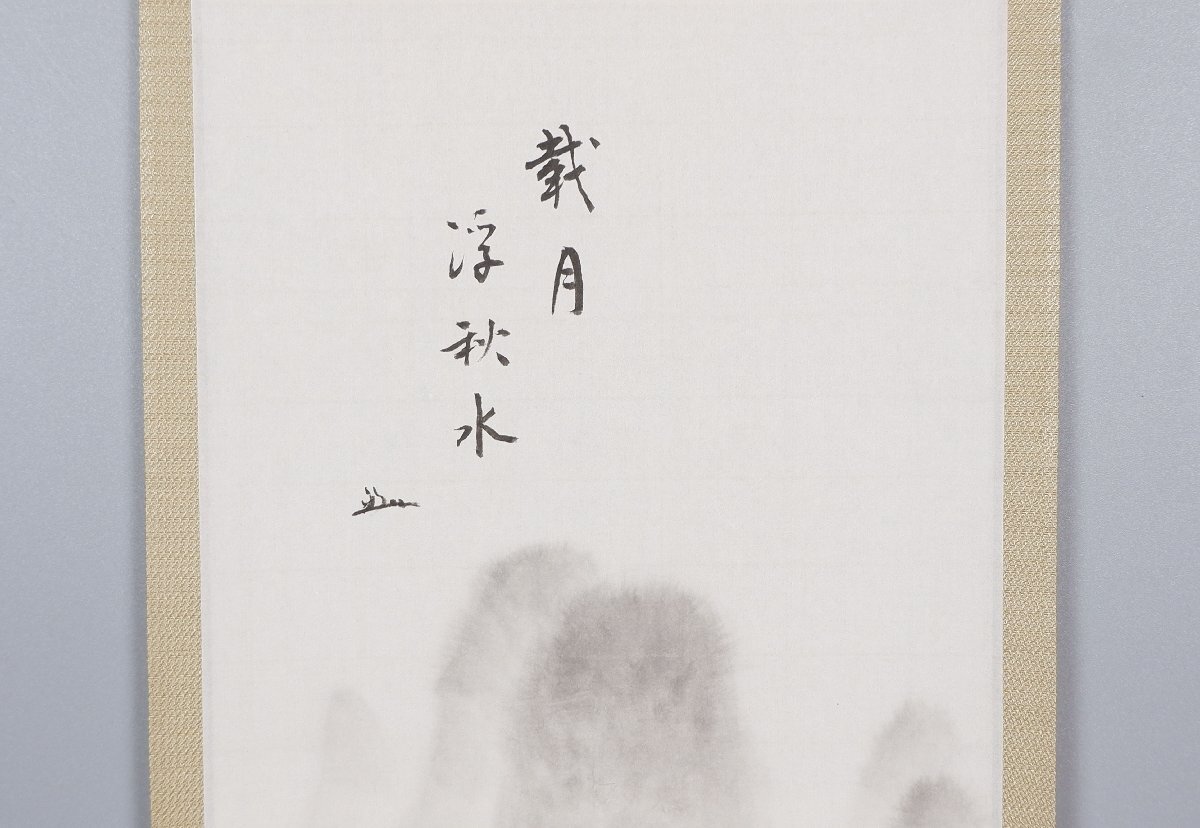 載月
浮秋水